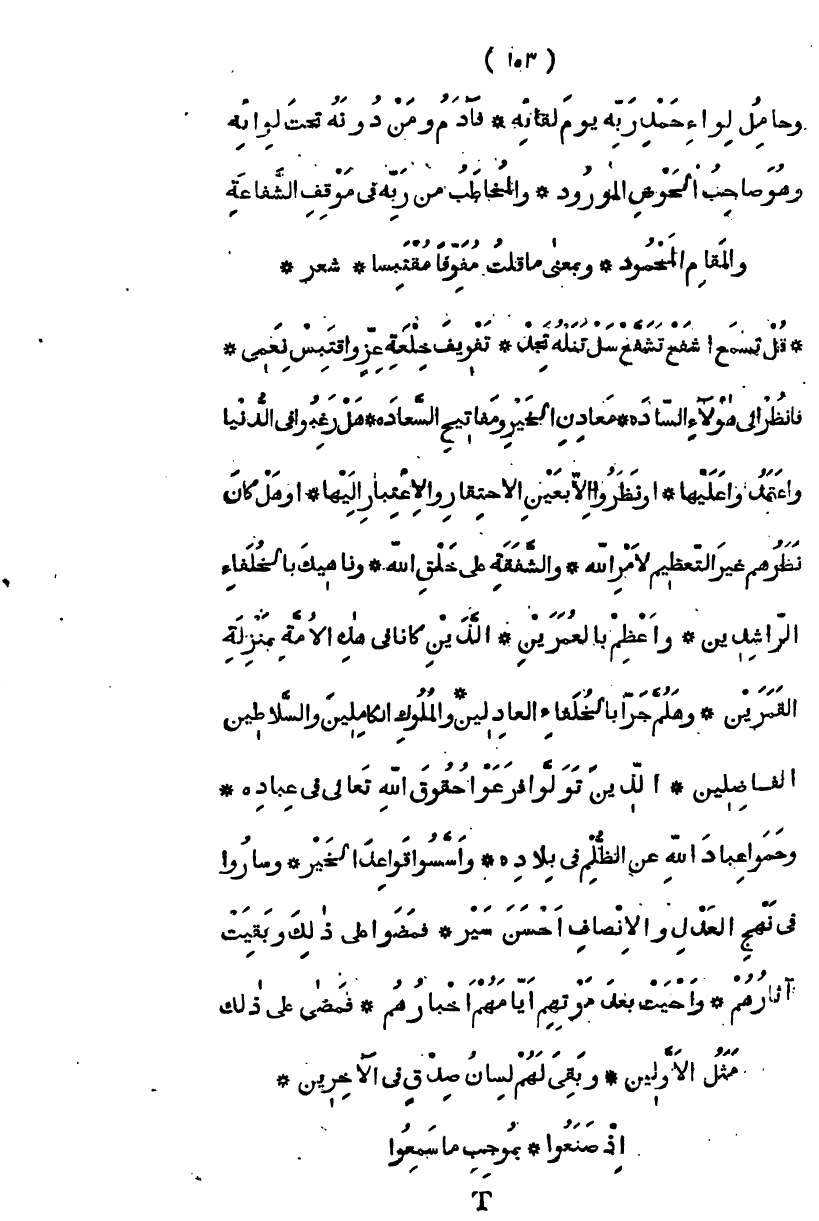 ( ١٠٣ )
وحامِلُ لِواءِ حَمْدِ رَبِّه يومَ لقائِه * فَآدَمُ ومَنْ دُونَهُ تحتَ لِوائِه
وهُوَ صاحِبُ الحَوْضِ المَوْرُود * والمُخاطَبُ من رَبِّه فى مَوْقِفِ الشَّفاعَةِ
والمَقامِ المَحْمُود * وبمعنى ما قلتُ مُفَوِّفًا مُقْتَبِسا * شعر *
* قُلْ تُسْمَع اشْفَعْ تُشَفَّعْ سَلْ تَنَلْهُ تَجِدْ * تَفْوِيفَ خِلْعَةِ عِزٍّ واقْتَبِسْ نِعَمِى *
فانظُرْ الى هٰؤُلَآءِ السّادَه * مَعادِنِ الخَيْرِ ومَفاتِيحِ السَّعادَه * هَلْ رَغِبُوا فى الدُّنْيا
واعتَمَدُوا عَلَيْها * او نَظَرُوا اِلّا بعَيْنِ الاحتِقارِ والاِعْتِبارِ اِلَيْها * او هَلْ كانَ
نَظَرُهم غيرَ التّعظِيم لاَمْرِ الله * والشَّفَقَةِ على خَلْقِ الله * وناهِيكَ بالخُلَفاءِ
الرّاشِدِين * واَعْظِمْ بالعُمَرَيْنِ * الَّذَيْنِ كانا فى هٰذِهِ الاُمَّةِ بمَنْزِلَةِ
القَمَرَيْن * وهَلُمَّ جَرّاً بالخُلَفاءِ العادِلِينَ * والمُلُوكِ الكامِلِينَ والسَّلاطِين
الفاضِلِين * الّذِينَ تَوَلَّوا فرَعَوْا حُقُوقَ اللّهِ تَعالى فى عِبادِه *
وحَمَوا عِبادَ اللّهِ عن الظُّلْمِ فى بِلادِه * واَسَّسُوا قَواعِدَ الخَيْر * وسارُوا
فى نَهْجِ العَدْلِ والاِنْصافِ اَحْسَنَ سَيْر * فمَضَوا على ذٰلِكَ وبَقِيَتْ
آثارُهُمْ * واَحْيَتْ بعدَ مَوْتِهِم اَيّامَهُمْ اَخْبارُهُم * فمَضٰى على ذٰلك
مَثَلُ الاَوَّلِين * وبَقِىَ لَهُمْ لِسانُ صِدْقٍ فى الآخِرِين *
اِذْ صَنَعُوا * بمُوجِبِ ما سَمِعُوا
T